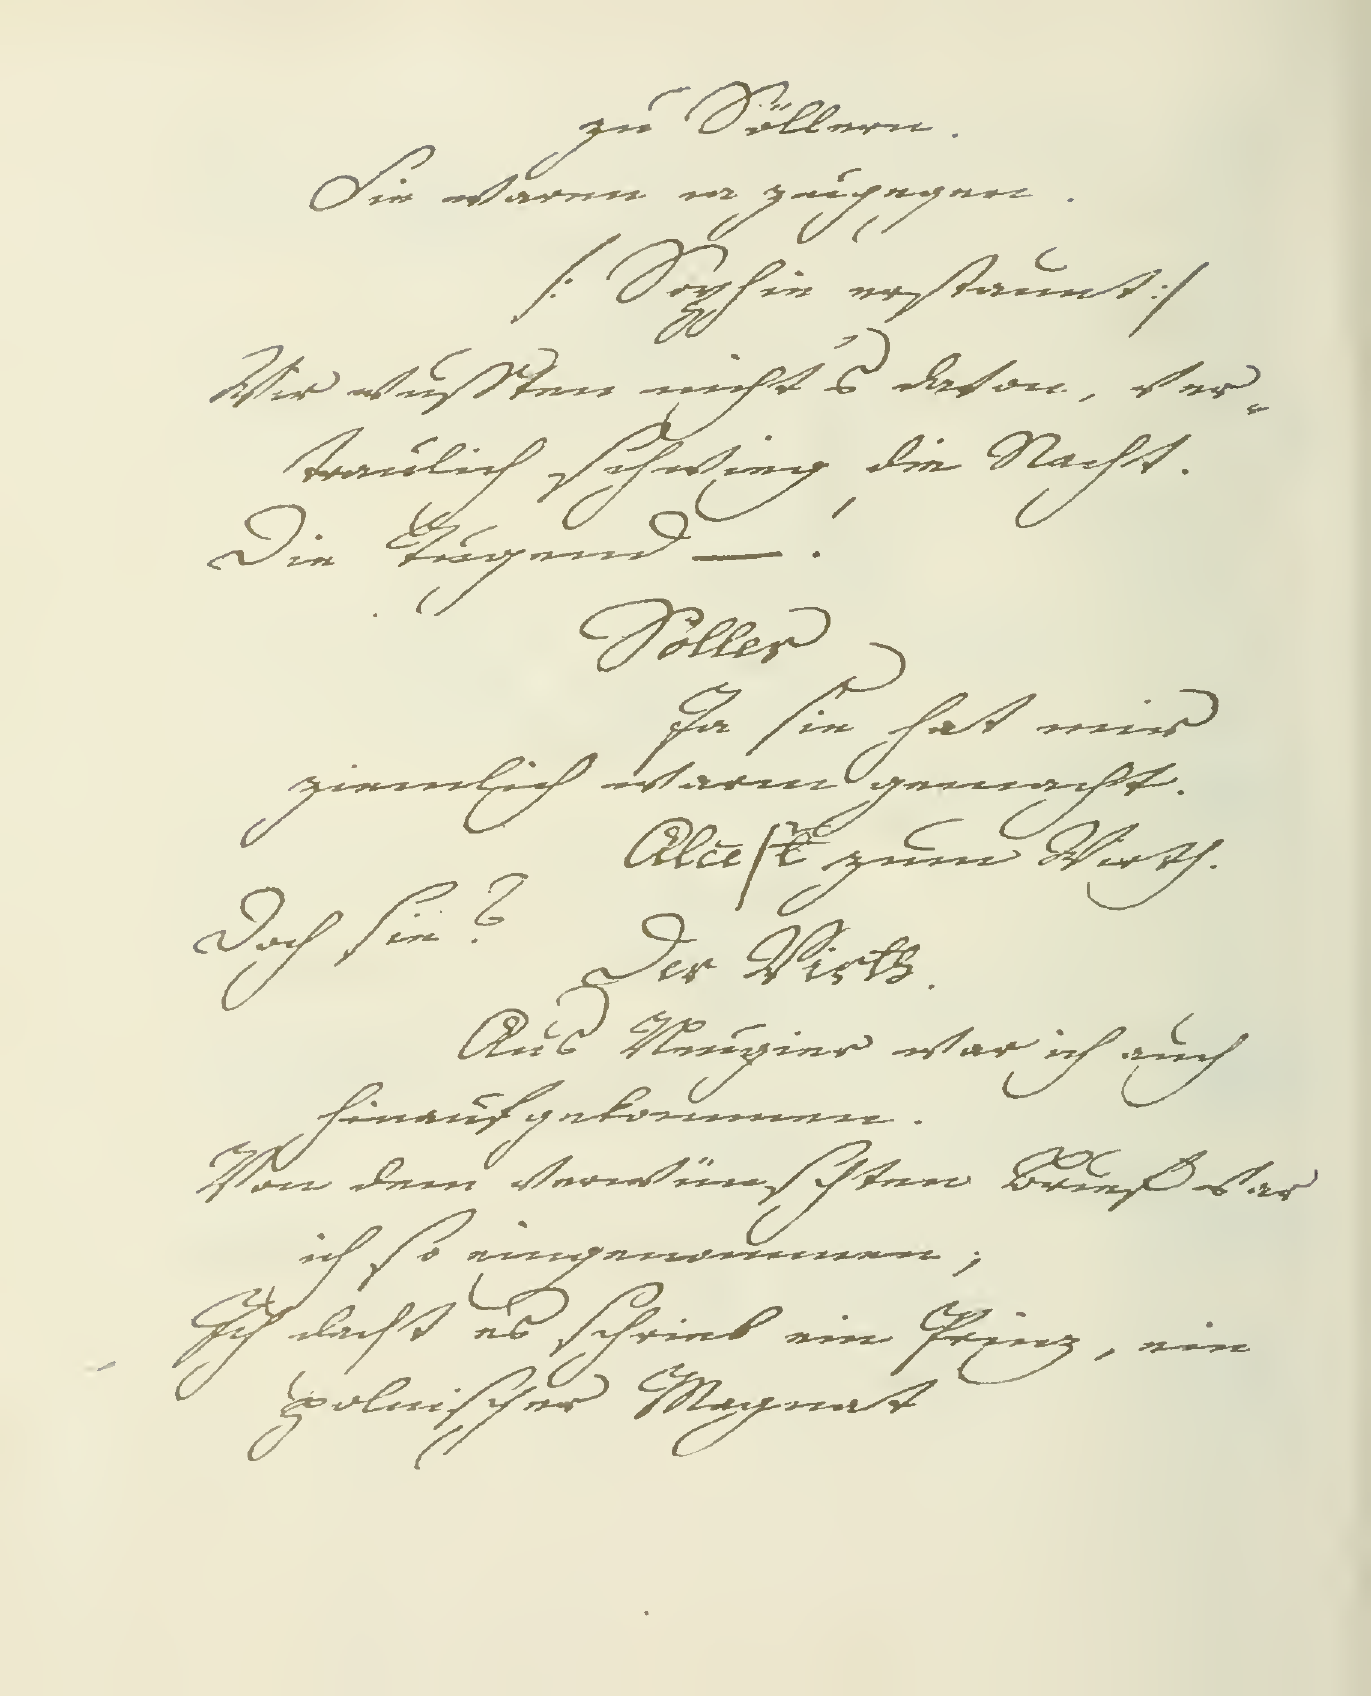 zu Söllern.
Sie waren ia zugegen.
/: Sophie erstaunt :/
Wir wußten nicht's davon, ver=
traulich schwieg die Nacht.
Die Tugend — !
Söller
Ja sie hat mir
ziemlich warm gemacht.
Alcest zum Wirth.
Doch sie?
Der Wirth.
Aus Neugier war ich auch
hinauf gekommen.
Von dem verwünschten Brief war
ich so eingenommen;
Ich dacht es schrieb ein Prinz, ein
polnischer Magnat